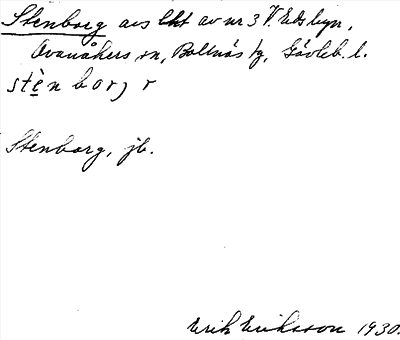 Stenborg avs lht av nr 3 V. Edsbyn,
Ovanåkers sn, Bollnäs tg, Gävleb. l.
stènborj r
Stenborg, jb.
Erik Eriksson 1930.